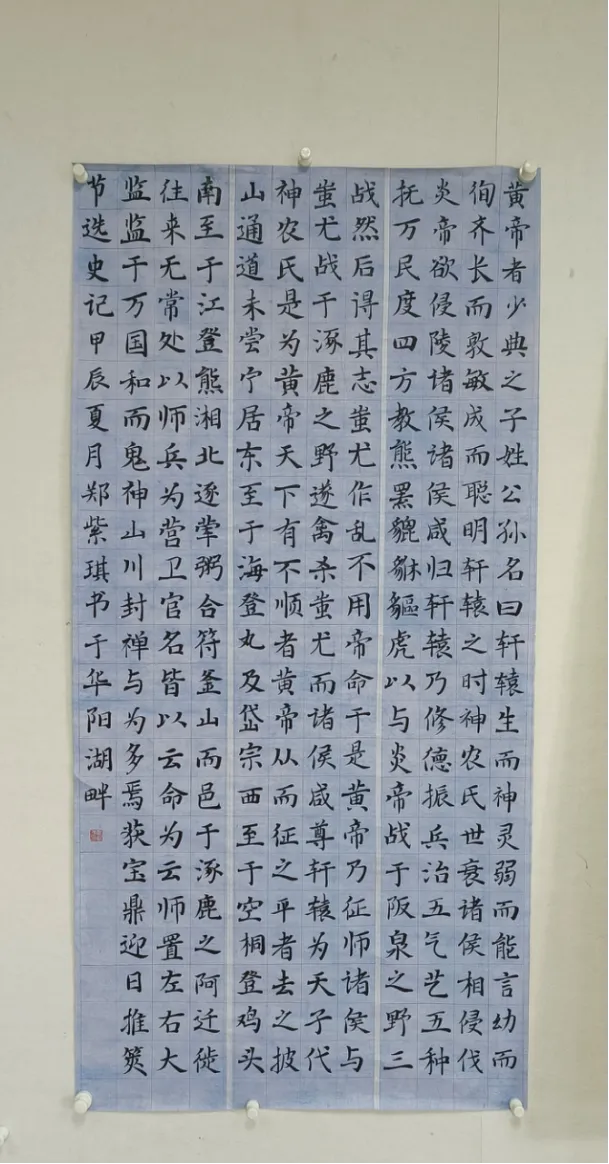 黄帝者少典之子姓公孙名曰轩辕生而神灵弱而能言幼而
徇齐长而敦敏成而聪明轩辕之时神农氏世衰诸侯相侵伐
炎帝欲侵陵诸侯诸侯咸归轩辕乃修德振兵治五气艺五种
抚万民度四方教熊罴貔貅貙虎以与炎帝战于阪泉之野三
战然后得其志蚩尤作乱不用帝命于是黄帝乃征师诸侯与
蚩尤战于涿鹿之野遂禽杀蚩尤而诸侯咸尊轩辕为天子代
神农氏是为黄帝天下有不顺者黄帝从而征之平者去之披
山通道未尝宁居东至于海登丸及岱宗西至于空桐登鸡头
南至于江登熊湘北逐荤粥合符釜山而邑于涿鹿之阿迁徙
往来无常处以师兵为营卫官名皆以云命为云师置左右大
监监于万国和而鬼神山川封禅与为多焉获宝鼎迎日推筴
节选史记甲辰夏月郑紫琪书于华阳湖畔